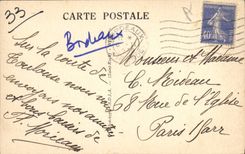 33
CARTE POSTALE
Bordeaux
Sur la route de
Toulouse nous
envoyons nos amitiés
et bons baisers de
Monsieur et Madame
C. Mideau
68 Rue de l'Eglise
Paris